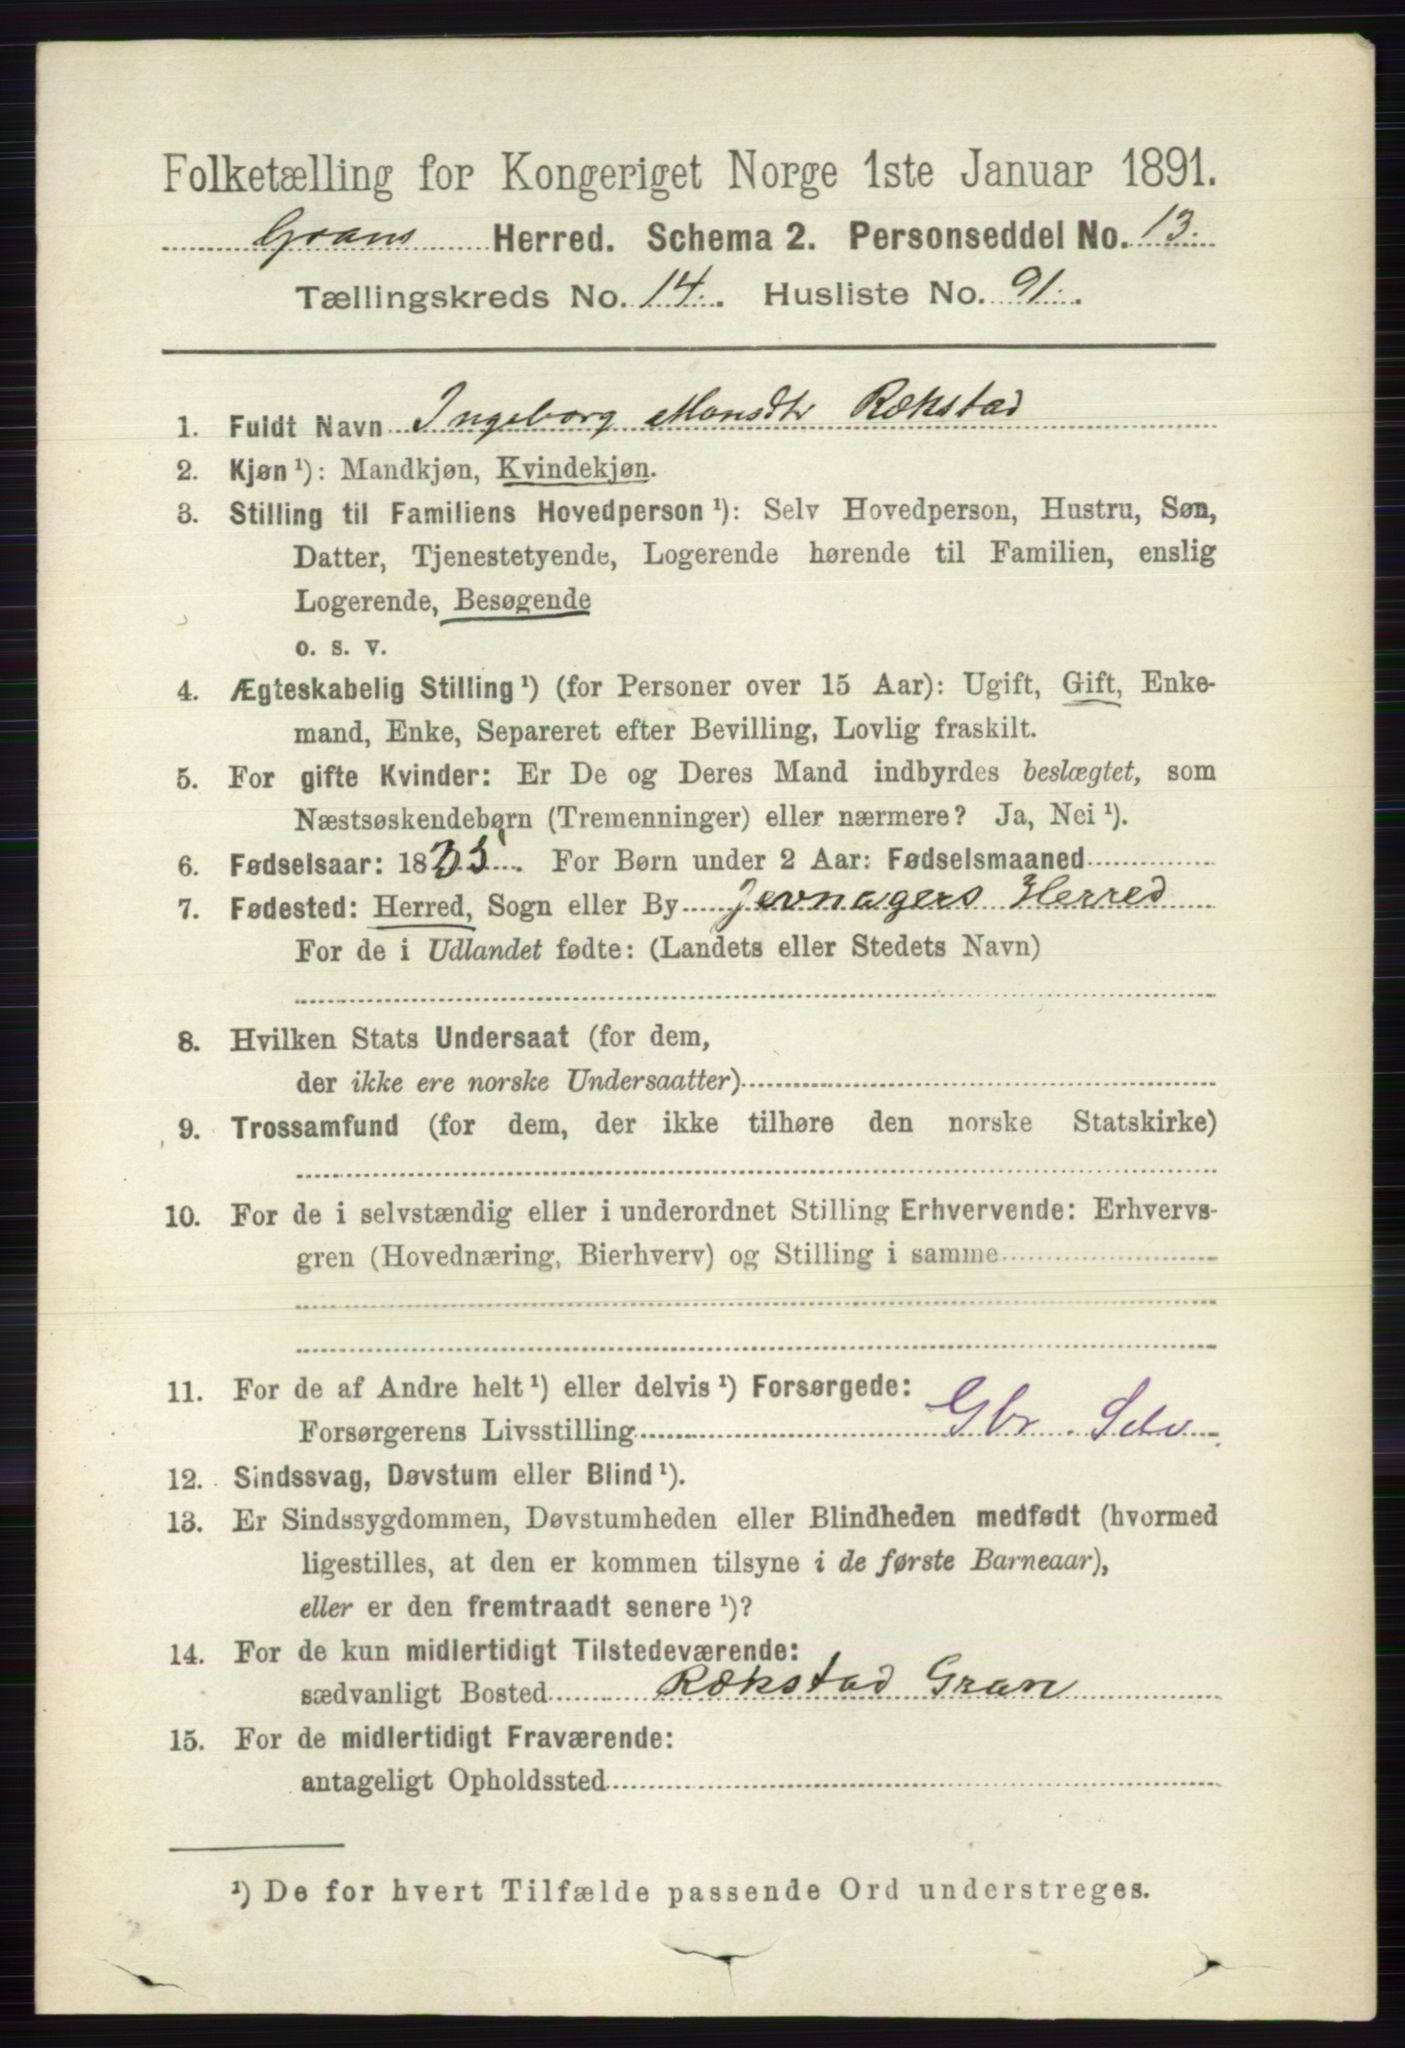 Folketælling for Kongeriget Norge 1ste Januar 1891.
Grans Herred. Schema 2. Personseddel No. 13.
Tællingskreds No. 14. Husliste No. 91.
1. Fuldt Navn Ingeborg Monsdtr Rækstad
2. Kjøn ¹): Mandkjøn, Kvindekjøn.
3. Stilling til Familiens Hovedperson ¹): Selv Hovedperson, Hustru, Søn,
Datter, Tjenestetyende, Logerende hørende til Familien, enslig
Logerende, Besøgende
o. s. v.
4. Ægteskabelig Stilling ¹) (for Personer over 15 Aar): Ugift, Gift, Enke-
mand, Enke, Separeret efter Bevilling, Lovlig fraskilt.
5. For gifte Kvinder: Er De og Deres Mand indbyrdes beslægtet, som
Næstsøskendebørn (Tremenninger) eller nærmere? Ja, Nei ¹).
6. Fødselsaar: 1835. For Børn under 2 Aar: Fødselsmaaned
7. Fødested: Herred, Sogn eller By Jevnagers Herred
For de i Udlandet fødte: (Landets eller Stedets Navn)
8. Hvilken Stats Undersaat (for dem,
der ikke ere norske Undersaatter)
9. Trossamfund (for dem, der ikke tilhøre den norske Statskirke)
10. For de i selvstændig eller i underordnet Stilling Erhvervende: Erhvervs-
gren (Hovednæring, Bierhverv) og Stilling i samme
11. For de af Andre helt ¹) eller delvis ¹) Forsørgede:
Forsørgerens Livsstilling Gbr. Selv
12. Sindssvag, Døvstum eller Blind ¹).
13. Er Sindssygdommen, Døvstumheden eller Blindheden medfødt (hvormed
ligestilles, at den er kommen tilsyne i de første Barneaar),
eller er den fremtraadt senere ¹)?
14. For de kun midlertidigt Tilstedeværende:
sædvanligt Bosted Rækstad Gran
15. For de midlertidigt Fraværende:
antageligt Opholdssted
¹) De for hvert Tilfælde passende Ord understreges.